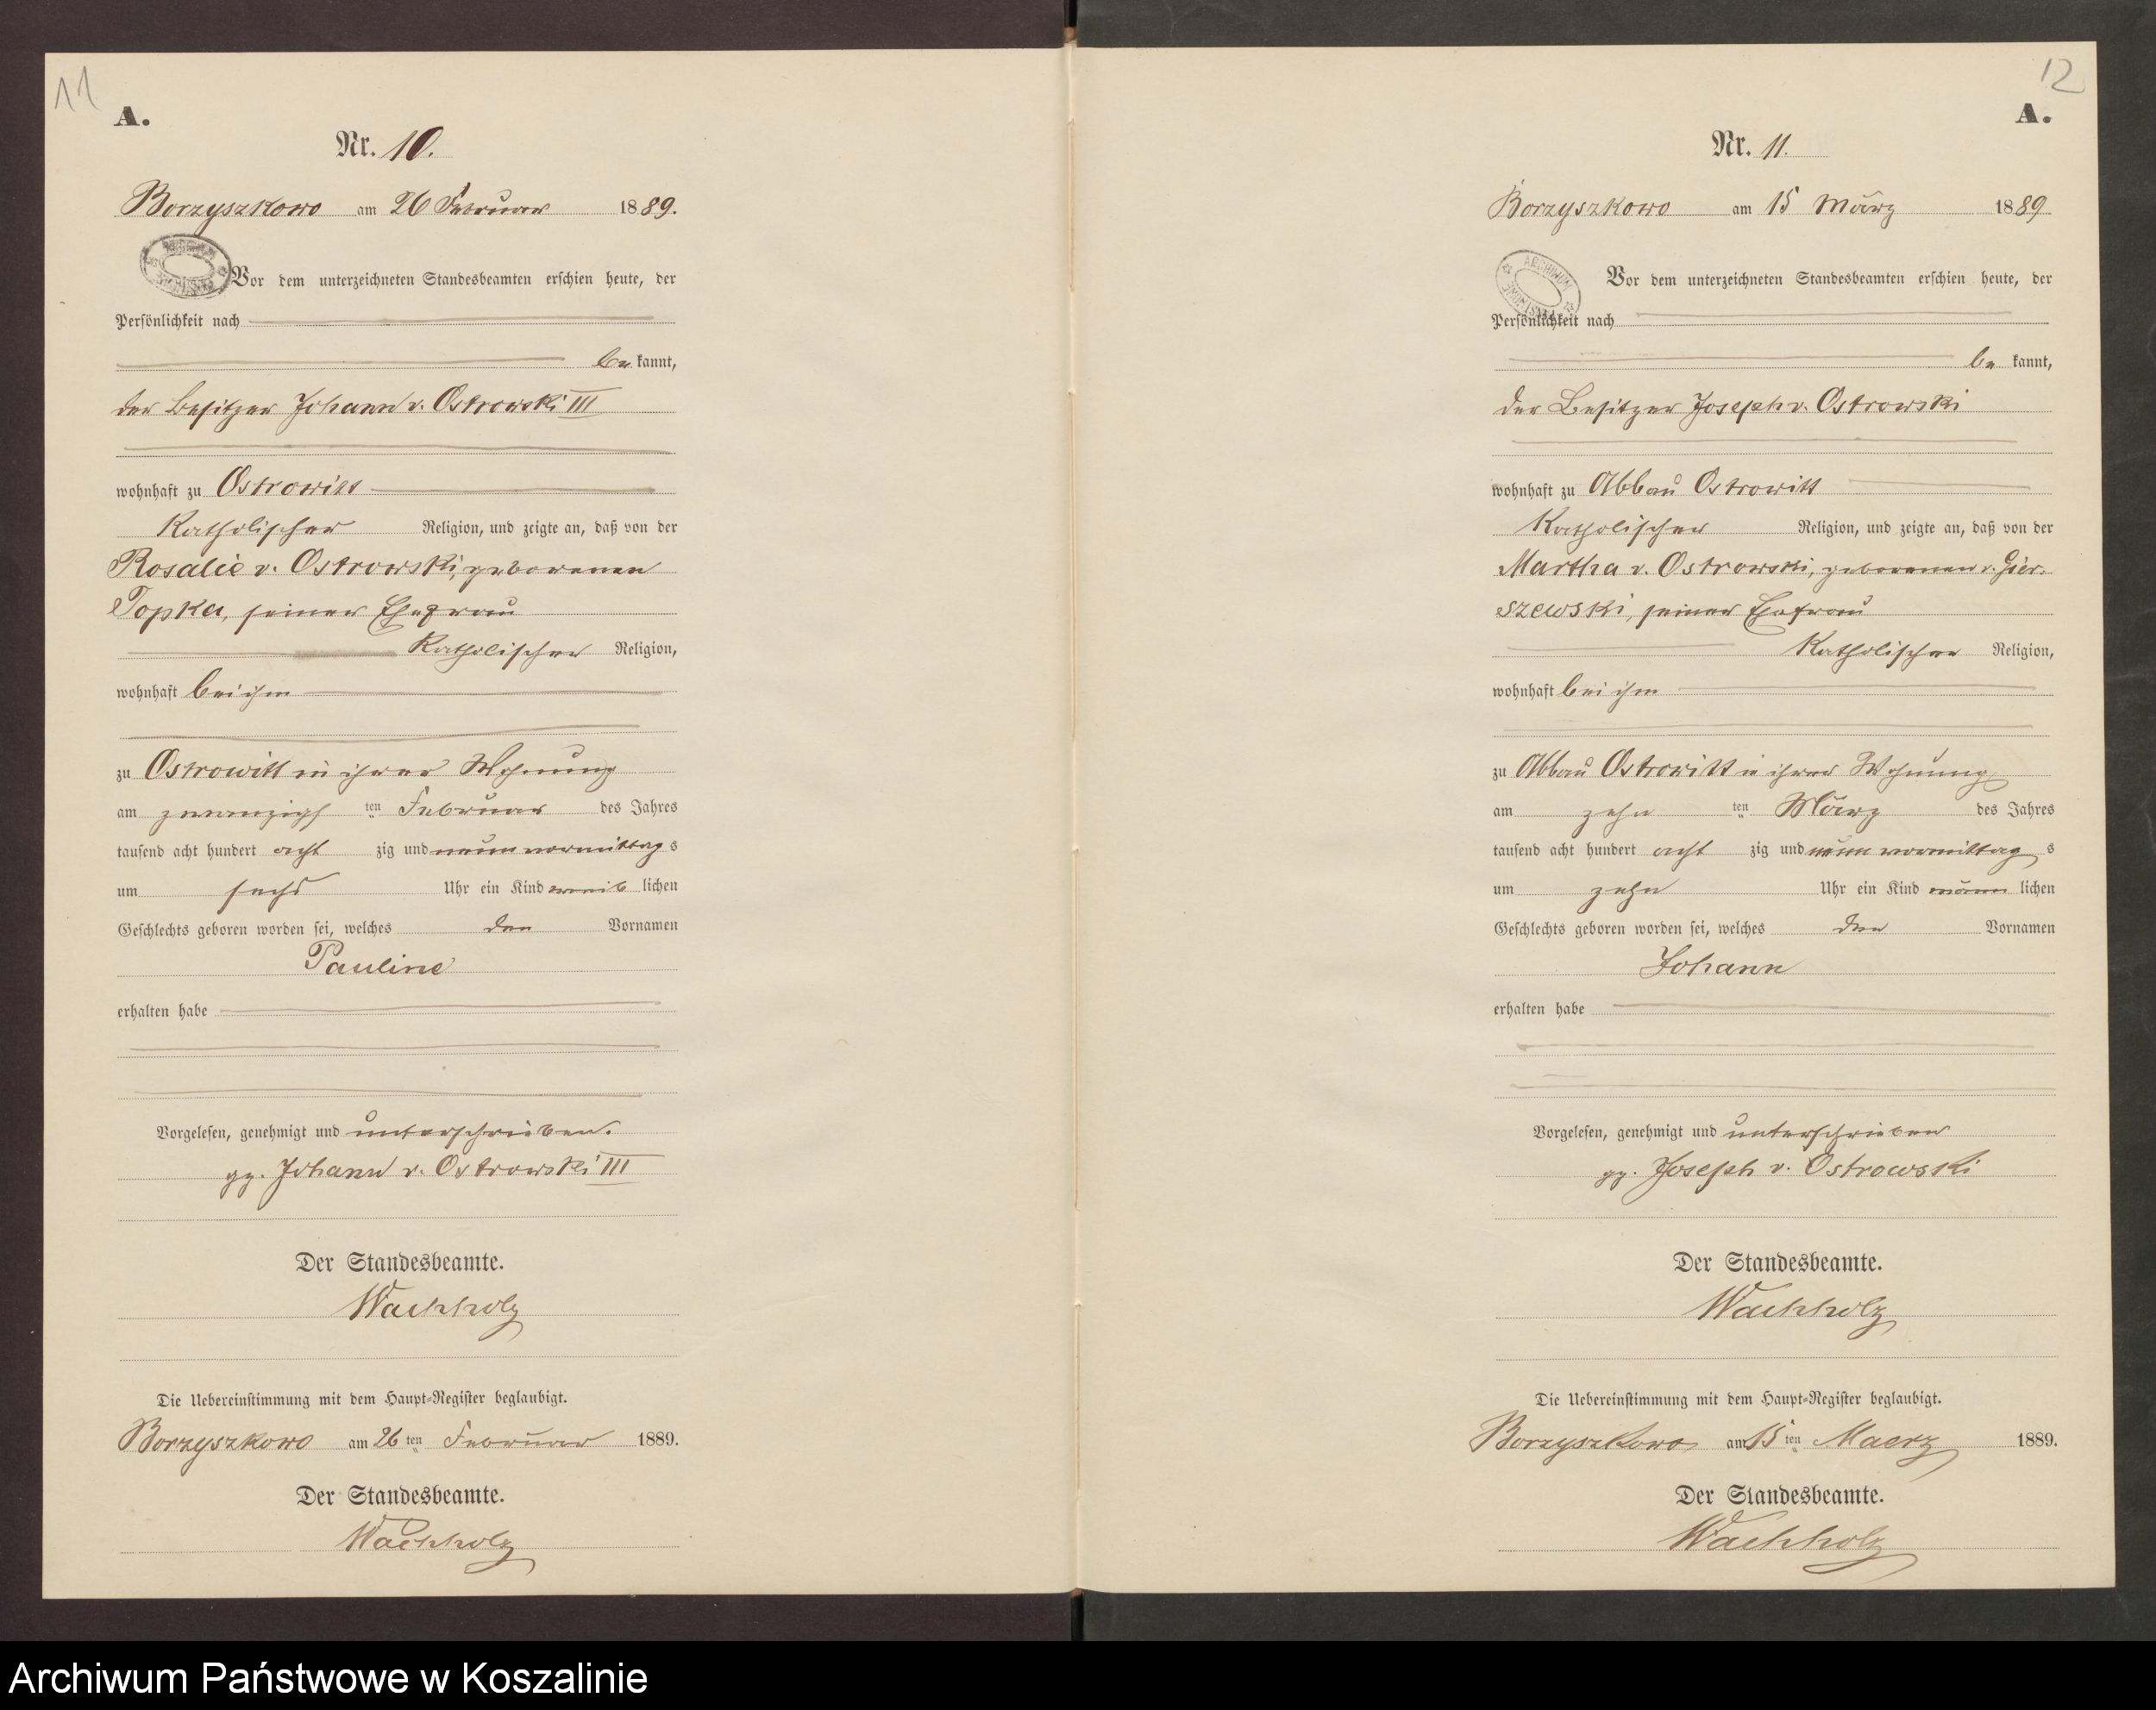 11
A.
Nr. 10.
Borzyszkowo am 26 Februar 1889.
Vor dem unterzeichneten Standesbeamten erschien heute, der
Persönlichkeit nach
be kannt,
der Besitzer Johann v. Ostrowski III
wohnhaft zu Ostrowitt
Katholischer Religion, und zeigte an, daß von der
Rosalie v. Ostrowski, geborenen
Topka, seiner Ehefrau
Katholischer Religion,
wohnhaft bei ihm
zu Ostrowitt in ihrer Wohnung
am zwanzigsten Februar des Jahres
tausend acht hundert acht zig und neun vormittag s
um sechs Uhr ein Kind weib lichen
Geschlechts geboren worden sei, welches den Vornamen
Pauline
erhalten habe
Vorgelesen, genehmigt und unterschrieben.
gz. Johann v. Ostrowski III
Der Standesbeamte.
Wachholz
Die Uebereinstimmung mit dem Haupt-Register beglaubigt.
Borzyszkowo am 26 ten Februar 1889.
Der Standesbeamte.
Wachholz
12
A.
Nr. 11.
Borzyszkowo am 15 März 1889
ARCHIWUM
Vor dem unterzeichneten Standesbeamten erschien heute, der
Persönlichkeit nach
be kannt,
der Besitzer Joseph v. Ostrowski
wohnhaft zu Abbau Ostrowitt
Katholischer Religion, und zeigte an, daß von der
Martha v. Ostrowski, geborenen v. Gier-
szewski, seiner Ehefrau
Katholischer Religion,
wohnhaft bei ihm
zu Abbau Ostrowitt in ihrer Wohnung
am zehn ten März des Jahres
tausend acht hundert acht zig und neun vormittag s
um zehn Uhr ein Kind männ lichen
Geschlechts geboren worden sei, welches den Vornamen
Johann
erhalten habe
Vorgelesen, genehmigt und unterschrieben
gz. Joseph v. Ostrowski
Der Standesbeamte.
Wachholz
Die Uebereinstimmung mit dem Haupt-Register beglaubigt.
Borzyszkowo am 15 ten Maerz 1889.
Der Standesbeamte.
Wachholz
Archiwum Państwowe w Koszalinie